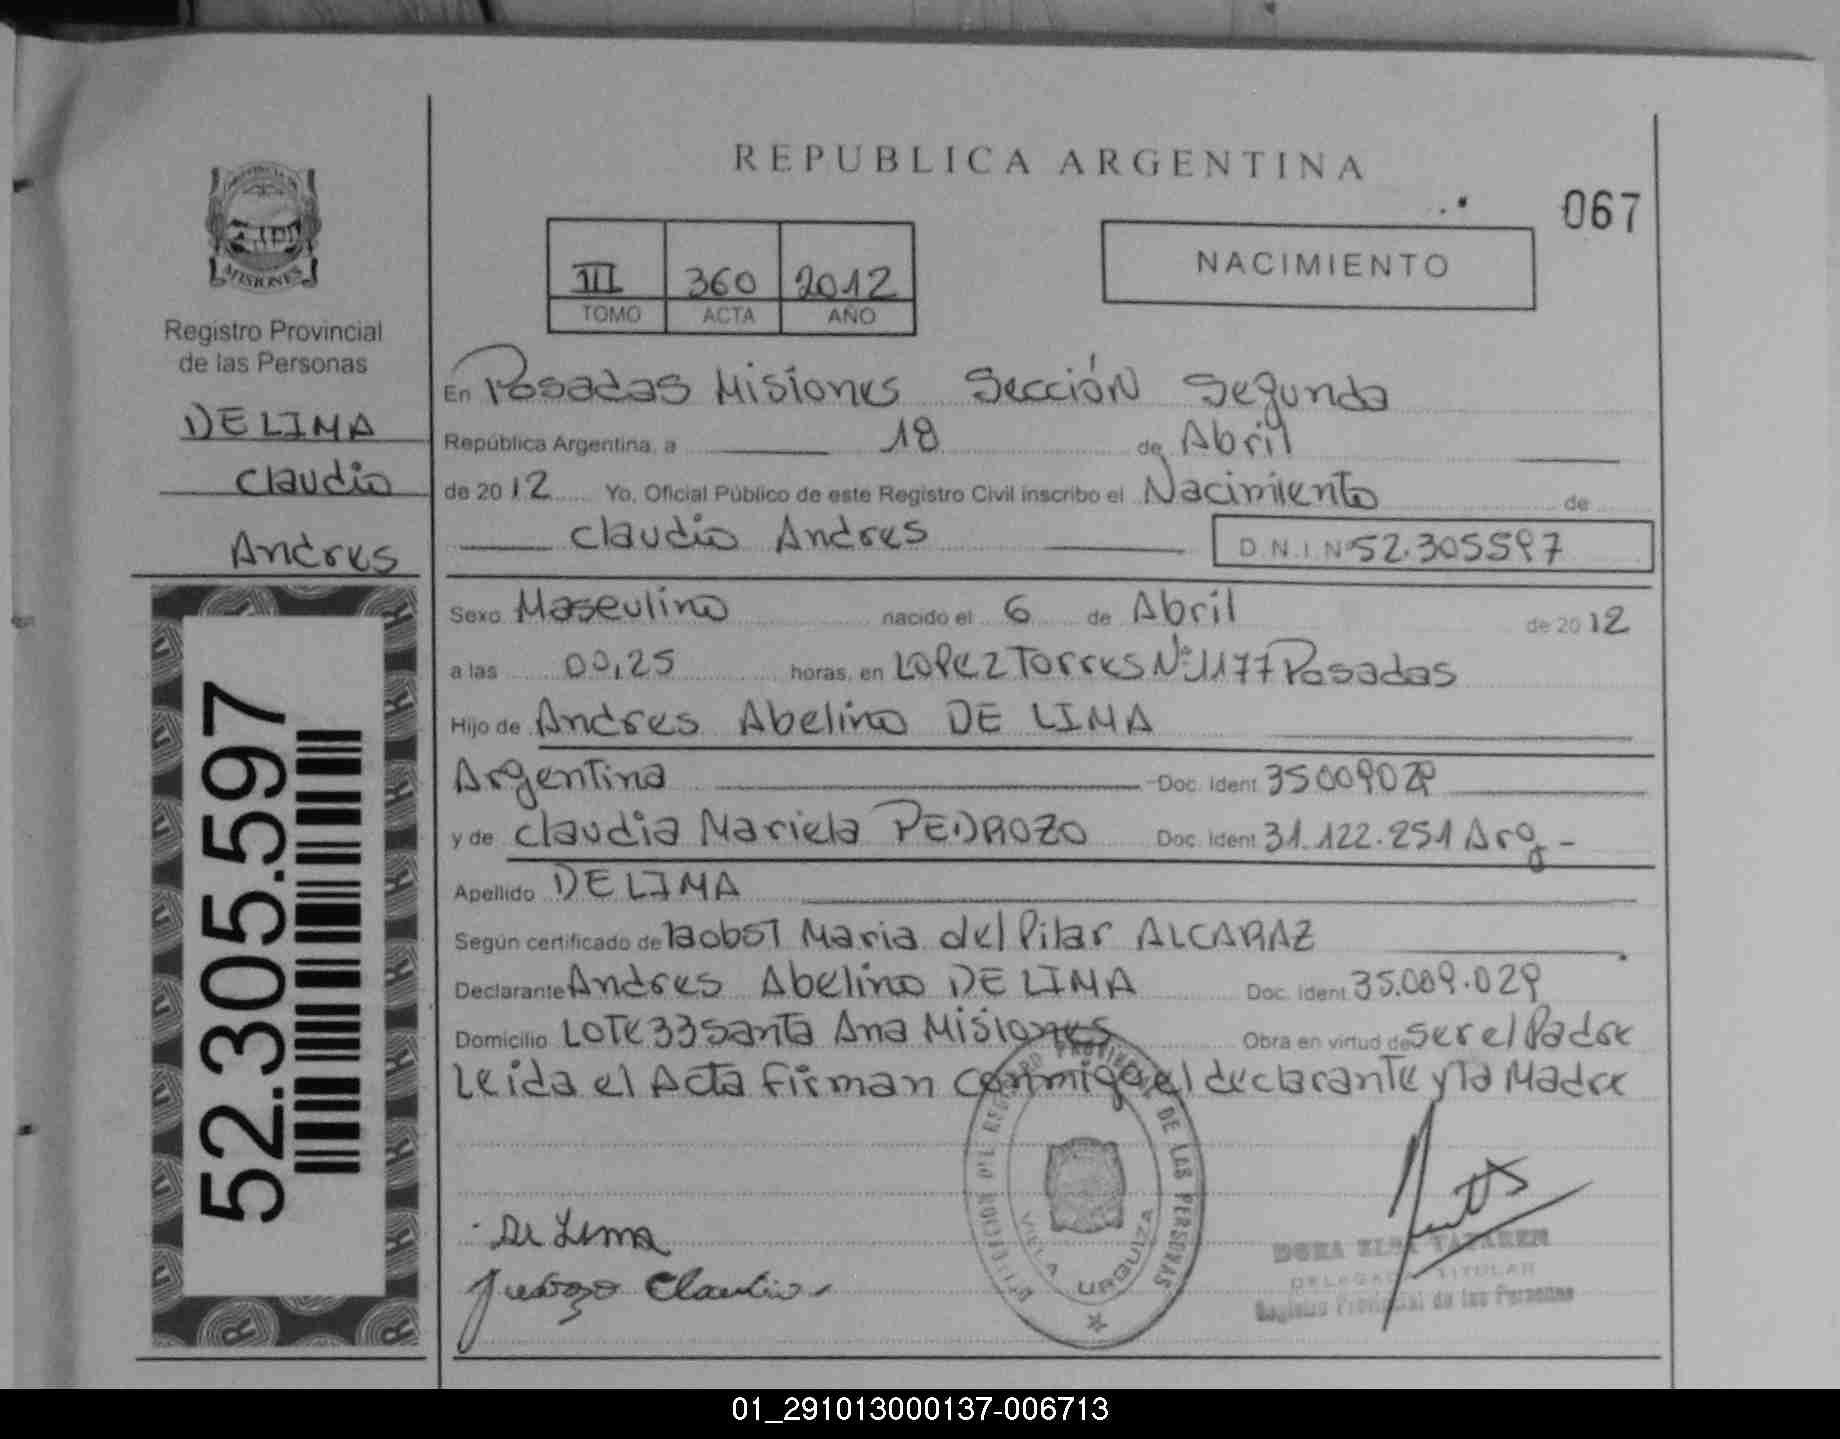 REPUBLICA ARGENTINA
067
III 360 2012
TOMO ACTA AÑO
NACIMIENTO
MISIONES
Registro Provincial
de las Personas
DE LIMA
Claudio
Andres
52.305.597
En Posadas Misiones Sección Segunda
República Argentina, a 18 de Abril
de 2012 Yo, Oficial Público de este Registro Civil inscribo el Nacimiento de
Claudio Andres D.N.I. Nº 52.305597
Sexo Masculino nacido el 6 de Abril de 2012
a las 00,25 horas, en LOPEZ Torres Nº 1177 Posadas
Hijo de Andres Abelino DE LIMA
Argentina Doc. Ident. 35009029
y de Claudia Mariela PEDROZO Doc. Ident. 31.122.251 Arg -
Apellido DE LIMA
Según certificado de Maria del Pilar ALCARAZ
Declarante Andres Abelino DE LIMA Doc. Ident. 35.009.029
Domicilio LOTE 33 Santa Ana Misiones Obra en virtud de ser el Padre
Leida el Acta firman conmigo el declarante y la Madre
De Lima
Claudia
DIRECCION DEL REGISTRO PROVINCIAL DE LAS PERSONAS
VILLA URQUIZA
DORA ELSA
DELEGADA TITULAR
Registro Provincial de las Personas
01_291013000137-006713